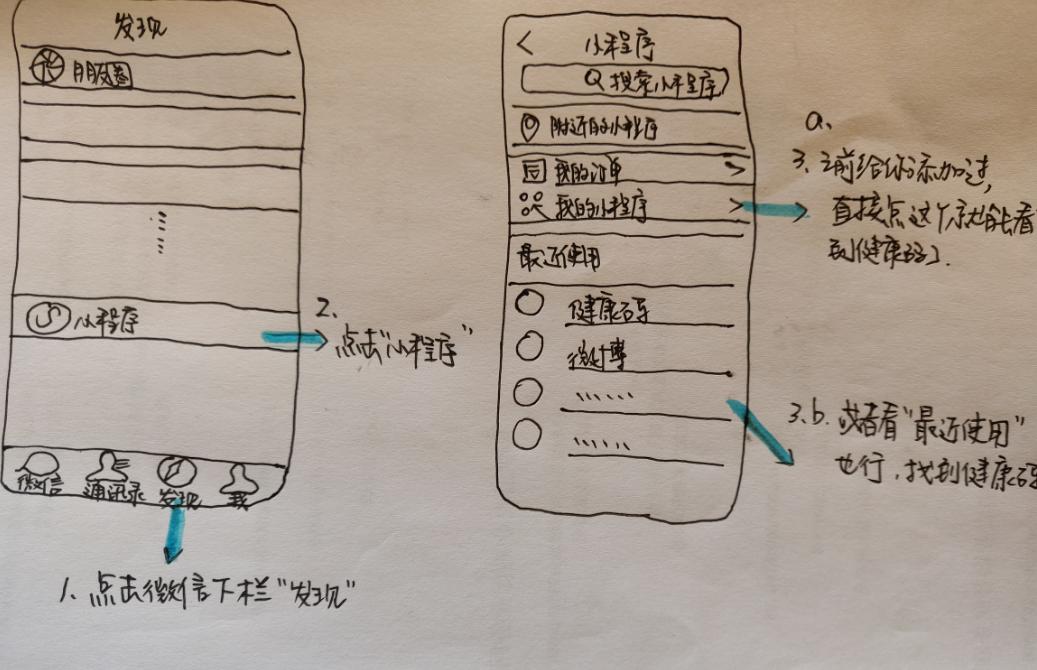 发现
朋友圈
小程序
微信 通讯录 发现 我
1. 点击微信下栏“发现”
2.
点击“小程序”
小程序
搜索小程序
附近的小程序
我的订单
我的小程序
最近使用
健康码
微博
a.
3. 之前给你添加过,
直接点这个就能看
到健康码.
3.b. 或者看“最近使用”
也行,找到健康码